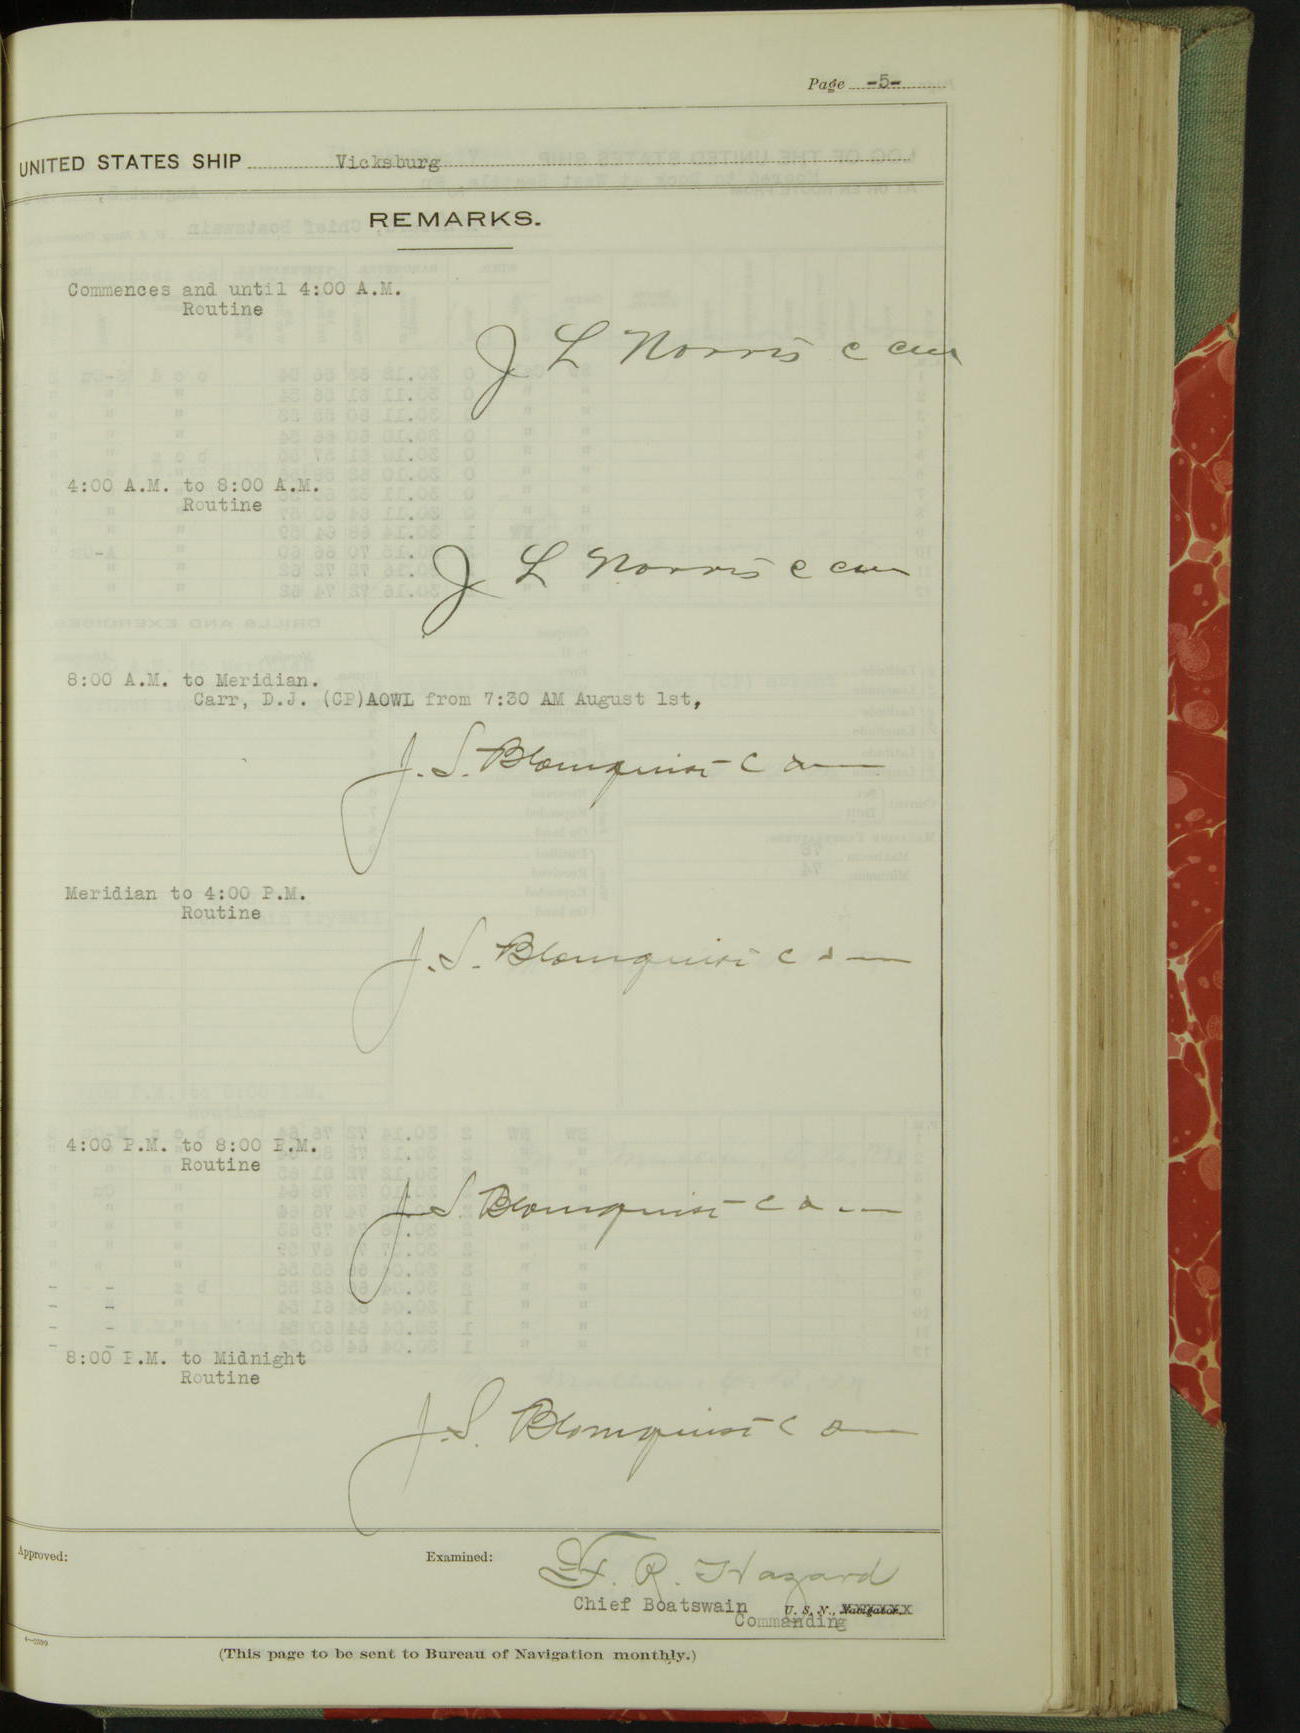 Page -5-
UNITED STATES SHIP Vicksburg
REMARKS.
Commences and until 4:00 A.M.
Routine
J L Norris c cm
4:00 A.M. to 8:00 A.M.
Routine
J L Norris c cm
8:00 A.M. to Meridian.
Carr, D.J. (CP)AOWL from 7:30 AM August 1st,
J. S. Blomquist
Meridian to 4:00 P.M.
Routine
J. S. Blomquist
4:00 P.M. to 8:00 P.M.
Routine
J. S. Blomquist
8:00 P.M. to Midnight
Routine
J. S. Blomquist
Approved:
Examined:
F. R. Hazard
Chief Boatswain U. S. N., Navigator.
Commanding
(This page to be sent to Bureau of Navigation monthly.)